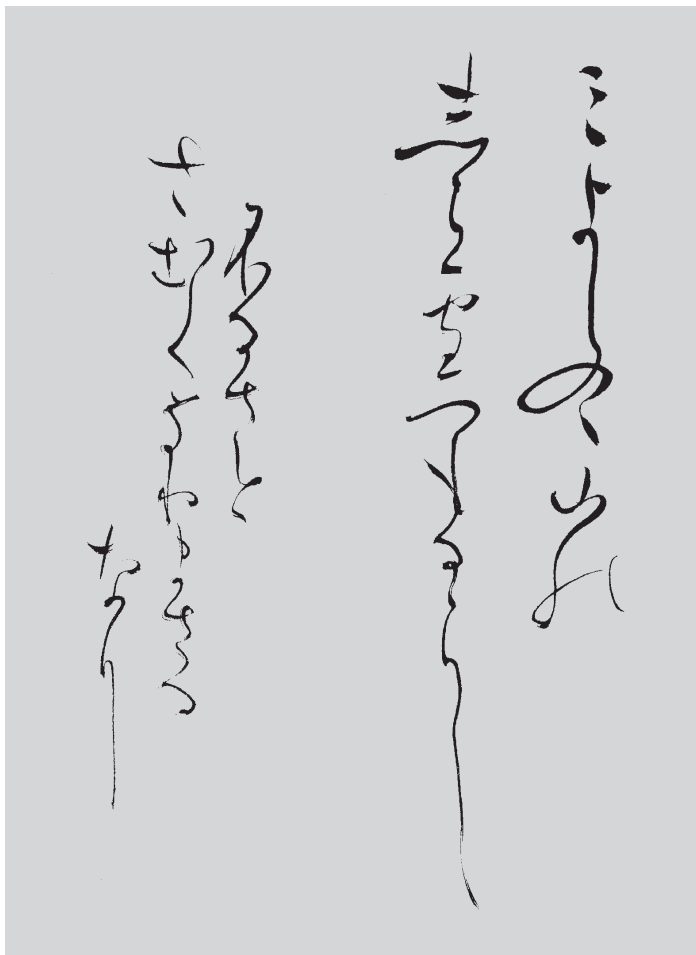 三よしのゝ山の
志ら雪つもるらし
不るさと
さむくなりまさる
なり